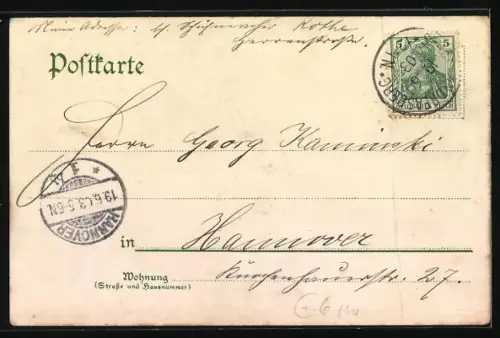 Meine Adresse: bei Schuhmacher Rothe
Herrenstraße.
Postkarte
5 5
Herrn Georg Kaminski
1 N
19.6.03.5-6N.
HANNOVER
in Hannover
Wohnung
(Straße und Hausnummer)
Knochenhauerstr. 27.